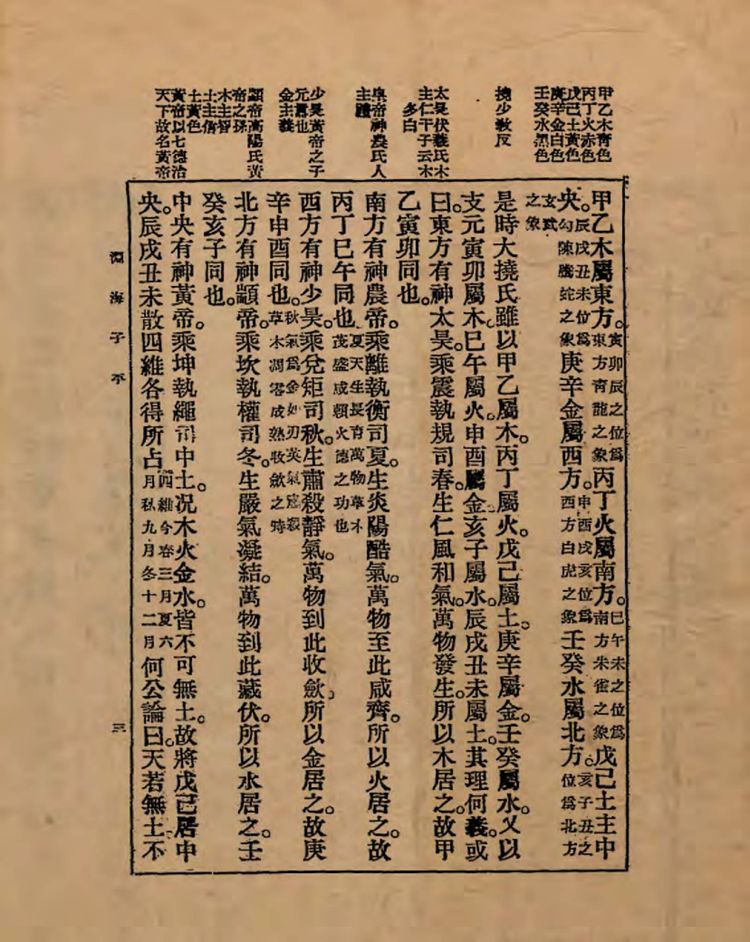 甲乙木青色
丙丁火赤色
戊己土黃色
庚辛金白色
壬癸水黑色
撓少教反
太昊伏羲氏木
主仁干子云木
多白
帝神農氏人
主禮
少昊黃帝之子
元囂也
金主義
顓帝高陽氏黃
帝之孫
木主智
土主信
土黃色
黃帝以七德治
天下故名黃帝
甲乙木屬東方。寅卯辰之位爲東方青龍之象丙丁火屬南方。巳午未之位爲南方朱雀之象戊己土主中
央。辰戌丑未位爲勾陳騰蛇之象庚辛金屬西方。申酉戌亥位爲西方白虎之象壬癸水屬北方。亥子丑之位爲北方
玄武之象
是時大撓氏雖以甲乙屬木。丙丁屬火。戊己屬土。庚辛屬金。壬癸屬水。又以
支元寅卯屬木。巳午屬火。申酉屬金。亥子屬水。辰戌丑未屬土。其理何義。或
曰。東方有神太昊。乘震執規司春。生仁風和氣。萬物發生。所以木居之。故甲
乙寅卯同也。
南方有神農帝。乘離執衡司夏。生炎陽酷氣。萬物至此咸齊。所以火居之。故
丙丁巳午同也。夏天生長育萬物草木茂盛咸賴火德之功也
西方有神少昊。乘兌矩司秋。生肅殺靜氣。萬物到此收斂。所以金居之。故庚
辛申酉同也。秋氣爲金如刃英氣寇殺草木凋零成熟收斂之時
北方有神顓帝。乘坎執權司冬。生嚴氣凝結。萬物到此藏伏。所以水居之。壬
癸亥子同也。
中央有神黃帝。乘坤執繩司中土。況木火金水。皆不可無土。故將戊己居中
央。辰戌丑未散四維各得所占四維今春三月夏六月秋九月冬十二月何公論曰。天若無土。不
淵海子平
三